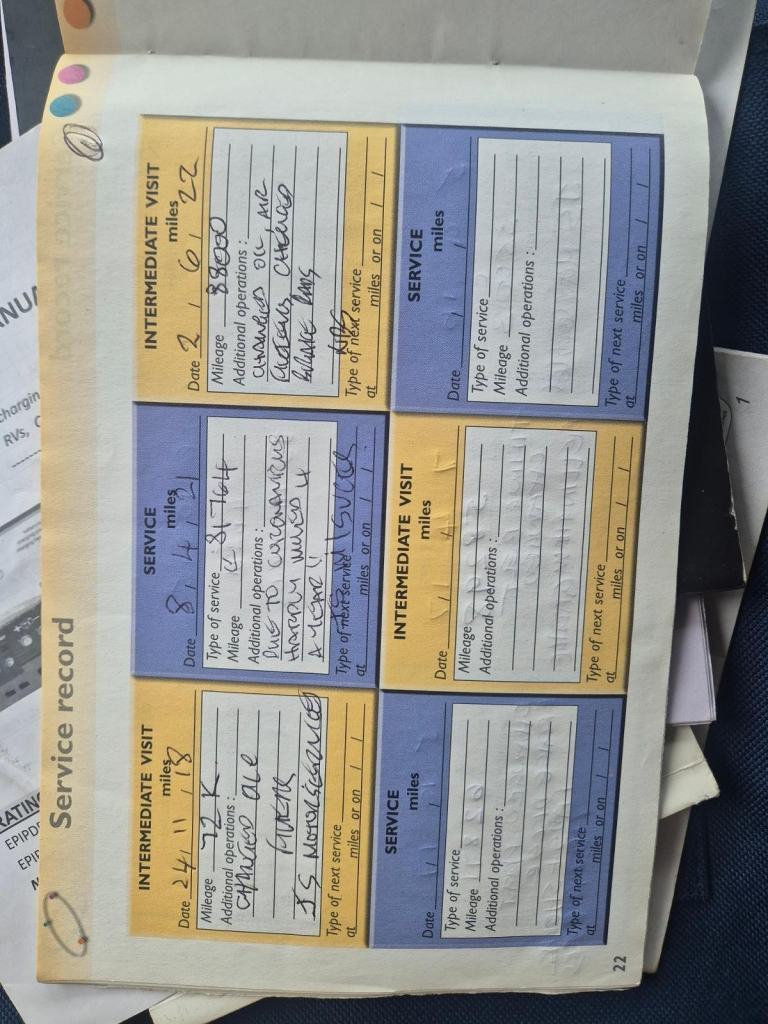 Service record
INTERMEDIATE VISIT
miles
Date 24 / 11 / 18
Mileage 72K
Additional operations :
CHANGED
FILTER
JS MOTOR SERVICES
Type of next service
at miles or on / /
SERVICE
miles
Date 8 / 4 / 21
Type of service
Mileage 81764
Additional operations :
DUE TO CORONAVIRUS
HARDLY MOVED 4
A YEAR !!
Type of next service
at miles or on / /
INTERMEDIATE VISIT
miles
Date 2 / 6 / 22
Mileage 88000
Additional operations :
CHANGED OIL, AIR
CHECKED
BRAKE PADS
Type of next service
at miles or on / /
SERVICE
miles
Date / /
Type of service
Mileage
Additional operations :
Type of next service
at miles or on / /
INTERMEDIATE VISIT
miles
Date / /
Mileage
Additional operations :
Type of next service
at miles or on / /
SERVICE
miles
Date / /
Type of service
Mileage
Additional operations :
Type of next service
at miles or on / /
22
RVs,
1